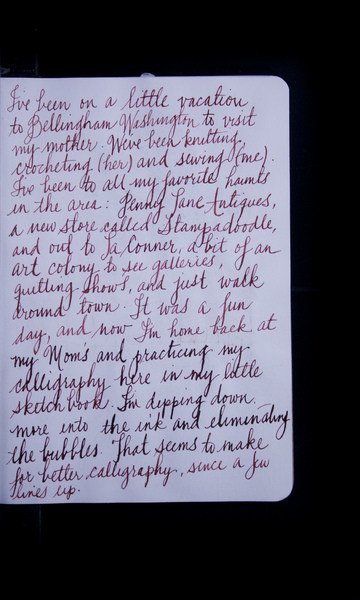 I've been on a little vacation
to Bellingham Washington to visit
my mother. We've been knitting,
crocheting (her) and sewing (me).
I've been to all my favorite haunts
in the area: Penny Lane Antiques,
a new store called Stampadoodle,
and out to La Conner, a bit of an
art colony to see galleries,
quilting shows, and just walk
around town. It was a fun
day, and now I'm home back at
my Mom's and practicing my
calligraphy here in my little
sketchbook. I'm dipping down
more into the ink and eliminating
the bubbles. That seems to make
for better calligraphy, since a few
lines up.